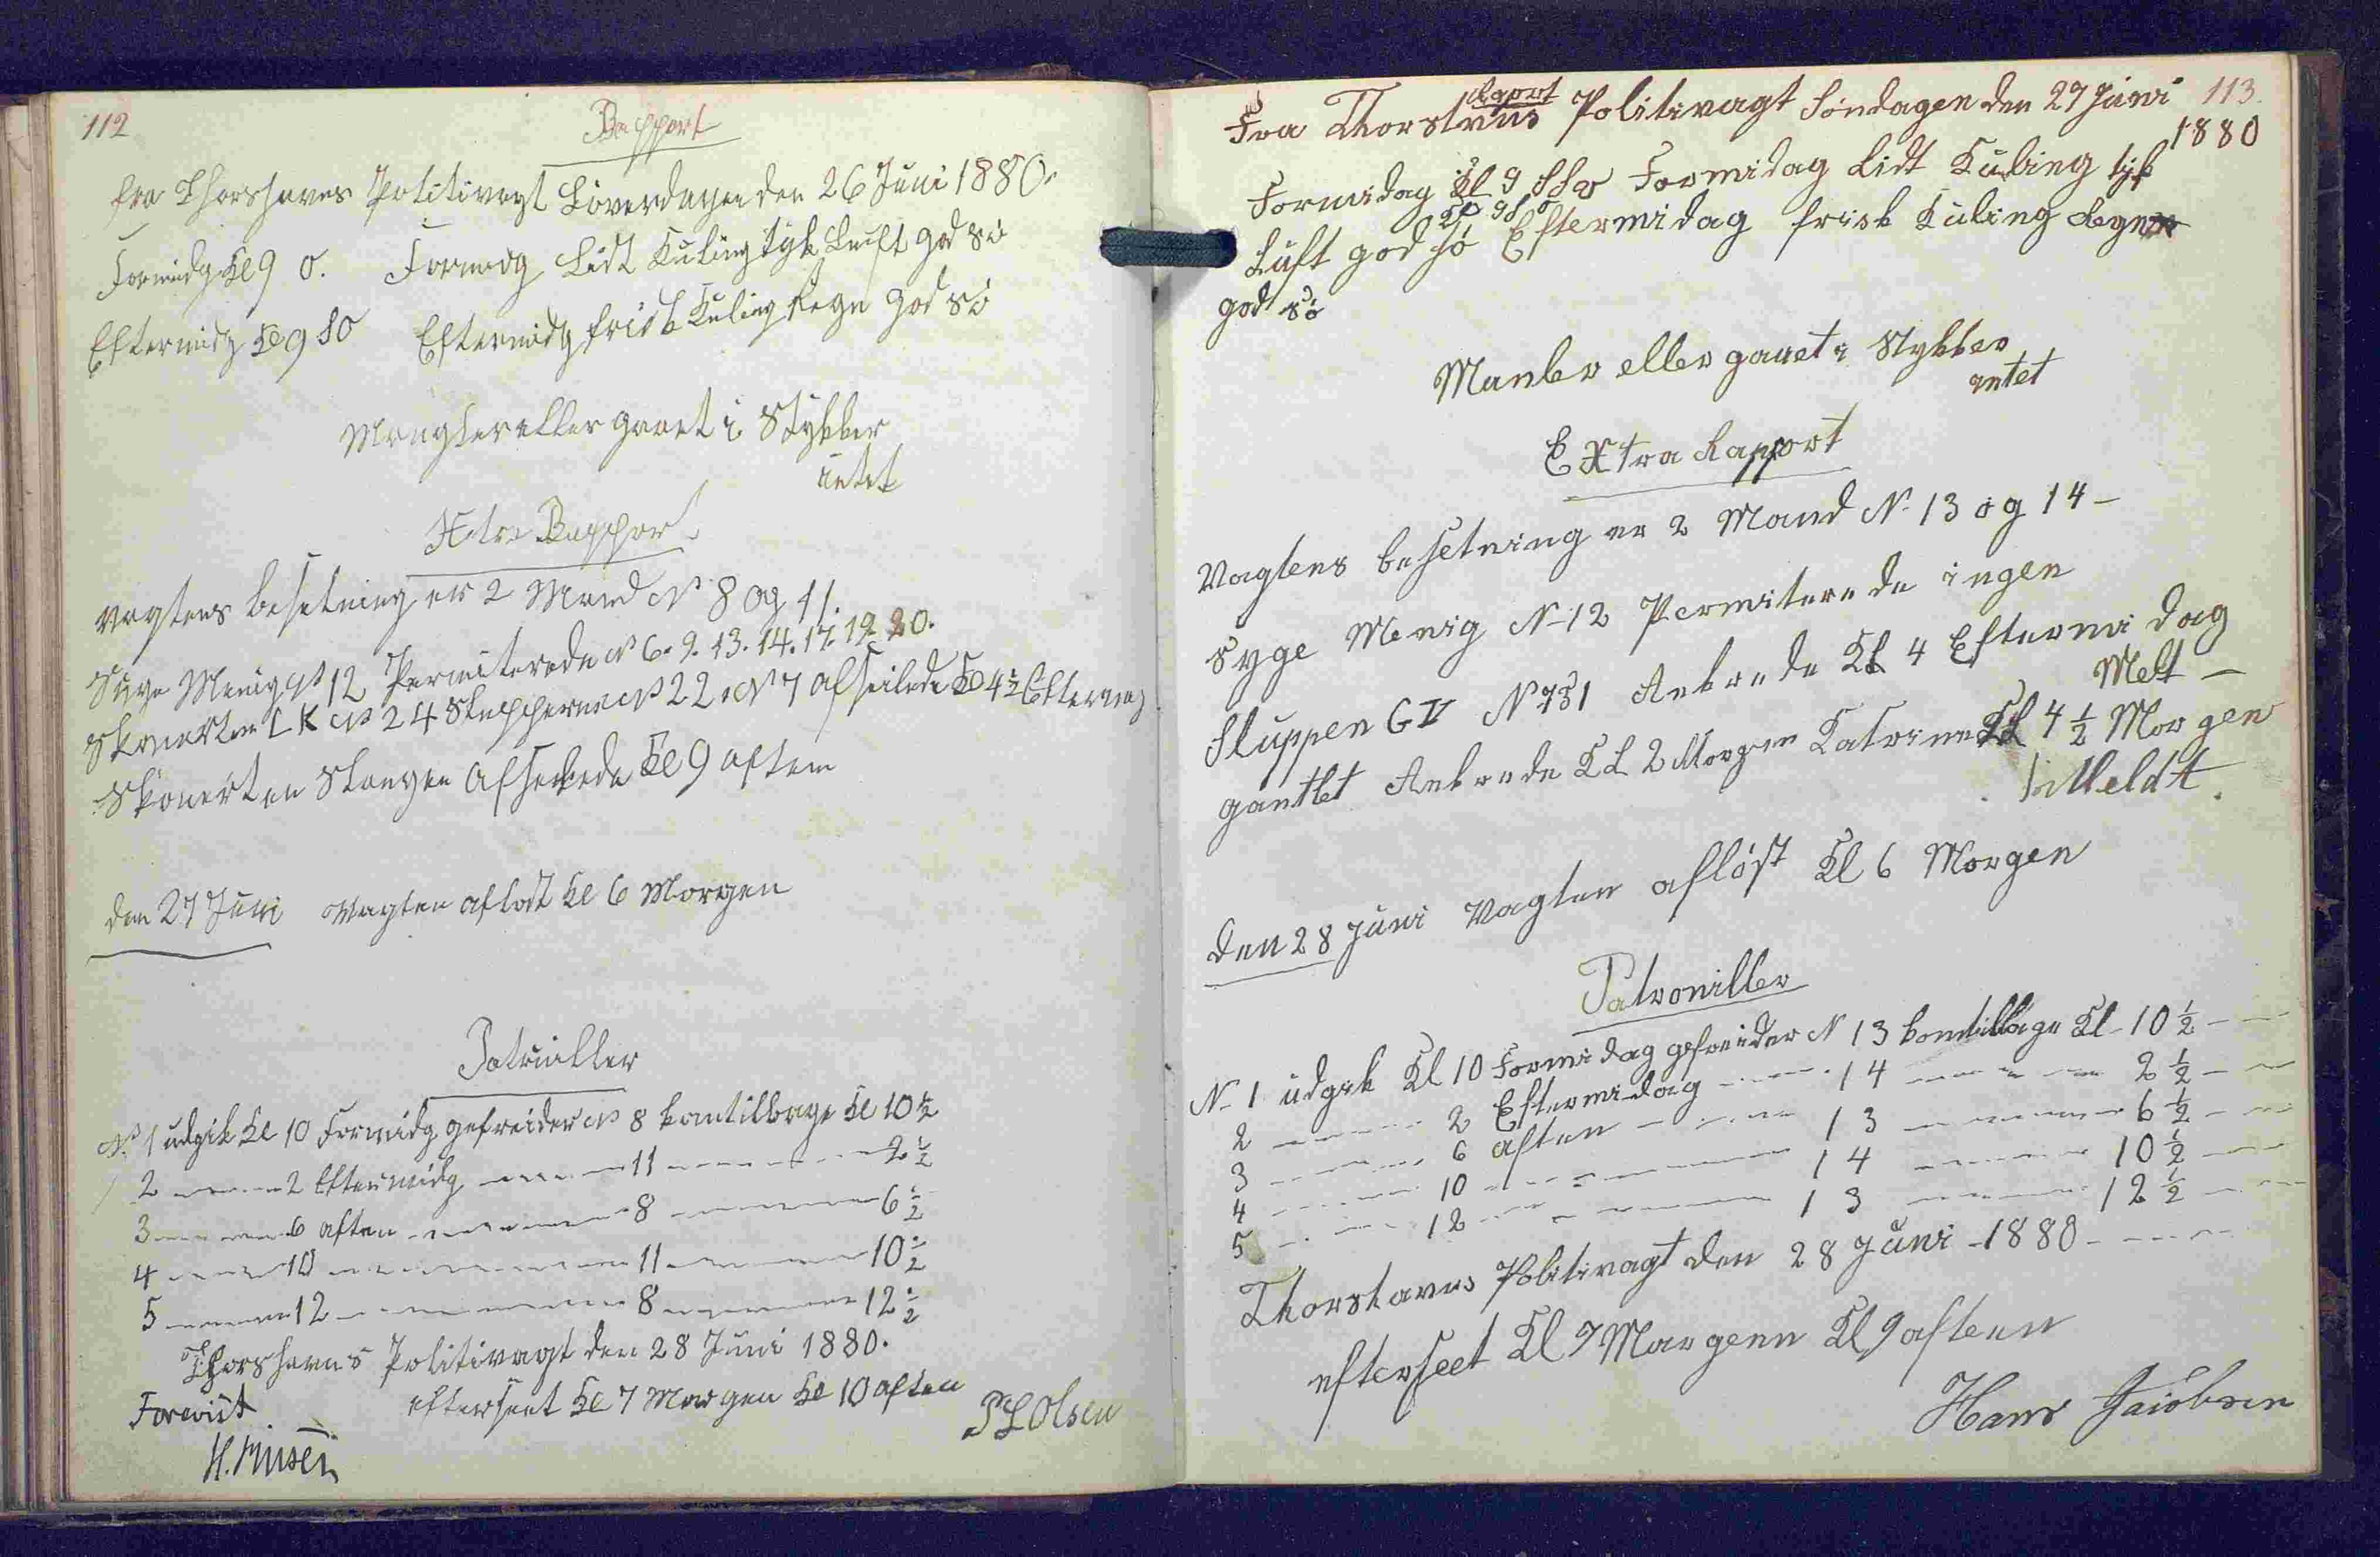 112
Rapport
fra Thorshavns Politivagt Löverdagen den 26 Juni 1880.
Formidg Kl 9 O. Formidg Lidt Kuling tyk Luft god sö
Eftermidg Kl 9 SO Eftermidg frisk Kuling Regn god sö
Mangler eller gaaet i Stykker
intet
Xtra Rappor
Vagtens besetning er 2 Mand No 8 og 11.
Syge Menig No 12 Permiterede No 6. 9. 13. 14. 17. 19 20.
Skonerten LK No 24 Slupperne No 22 No 7 afseilede Kl 4½ Eftermg
Skonerten afseilede Kl 9 aften
den 27 Juni Vagten aflöst Kl 6 Morgen
Patruller
No 1 udgik Kl 10 Formidg gefreider No 8 komtilbage Kl 10½
2 2 Eftermidg 11 2½
3 6 aften 8 6½
4 10 11 10½
5 12 8 12½
Thorshavns Politivagt den 28 Juni 1880.
Forevist efterseet Kl 7 Morgen Kl 10 aften
H. Müsen PL Olsen
113.
Raport
Fra Thorshavns Politivagt Söndagen den 27 Juni
1880
Formidag Kl 9 SSv Formidag Lidt Kuling tyk
Kl 9 SO
Luft god sö Eftermidag frisk Kuling Regn
god sö
Manler eller gaaet i Stykker
intet
EXtra Rapport
Vagtens besetning er 2 Mand N. 13 og 14 -
Syge Menig N-12 Permiterede ingen
Sluppen GV N 731 Ankrede Kl 4 Eftermidag
Melt -
Ankrede Kl 2 Morgen Katrine Kl 4½ Morgen
den 28 Juni Vagten aflöst Kl 6 Morgen
Patrouiller
N- 1 udgik Kl 10 Formidag gefreider N 13 komtilbage Kl - 10½
2 2 Eftermidag 14 2½
3 6 aften 13 6½
4 10 14 10½
5 12 13 12½
Thorshavns Politivagt den 28 Juni - 1880
efterseet Kl 7 Morgenn Kl 9 aftenn
Hans Jaiobsen